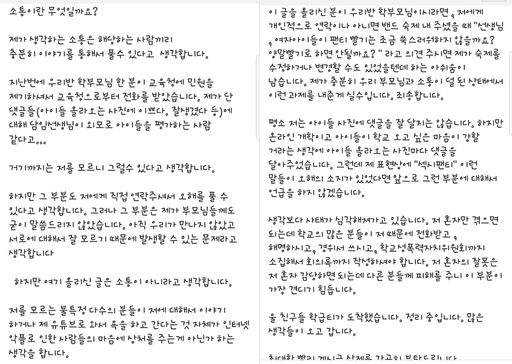 소통이란 무엇일까요?
제가 생각하는 소통은 해당하는 사람끼리
충분히 이야기를 통해서 풀수 있다고 생각합니다.
지난번에 우리반 학부모님 한 분이 교육청에 민원을
제기하셔서 교육청으로부터 전화를 받았습니다. 제가 단
댓글들(아이들 올라오는 사진에 이쁘다, 잘생겼다 등)에
대해 담임선생님이 외모로 아이들을 평가하는 사람
같다고...
거기까지는 저를 모르니 그럴수 있다고 생각합니다.
하지만 그 부분도 저에게 직접 연락주셔서 오해를 풀 수
있다고 생각합니다. 그러나 그 부분은 제가 부모님들께도
굳이 말씀드리지 않았습니다. 아직 우리가 만나지 않았고
서로에 대해서 잘 모르기 때문에 발생할 수 있는 문제라고
생각합니다
하지만 여기 올리신 글은 소통이 아니라고 생각합니다.
저를 모르는 불특정 다수의 분들이 저에 대해서 이야기
하거나 제 유튜브로 와서 욕을 하고 간다는 것 자체가 인터넷
악플로 인한 사람들의 마음에 상처를 주는게 아닌가 하는
생각을 합니다.
이 글을 올리신 분이 우리반 학부모님이시라면, 저에게
개인적으로 연락이나 아니면 밴드 숙제 내 주셨을 때 "선생님
, 여자아이들이 팬티 빨기는 조금 쑥스러워하지 않을까요?
양말빨기로 하면 안될까요?" 라고 의견 주시면 제가 숙제를
수정하거나 변경할 수도 있었을텐데 하는 아쉬움이
남습니다. 제가 충분히 우리 부모님과 소통이 덜 된 상태에서
이런 과제를 내준게 실수입니다. 죄송합니다.
평소 저는 아이들 사진에 댓글을 잘 달지는 않습니다. 하지만
온라인 개학이고 아이들이 학교 오고 싶은 마음이 강할
거라는 생각에 아이들 올라오는 사진마다 댓글을
달아주었습니다. 그런데 제 표현상에 "섹시팬티" 이런
말들이 오해의 소지가 있었다면 앞으로 그런 부분에 대해서
언급을 하지 않겠습니다.
생각보다 사태가 심각해져가고 있습니다. 저 혼자만 겪으면
되는데 학교의 많은 분들이 저 때문에 전화받고,
해명하시고, 경위서 쓰시고, 학교성폭력자치위원회까지
소집해서 회의록까지 작성하셔야 합니다. 저 혼자의 잘못은
저 혼자 감당하면 되는데 다른 분들께 피해를 주니 이 부분이
가장 견디기 힘듭니다.
울 친구들 학급티가 도착했습니다. 정리 중입니다. 많은
생각들이 오고 갑니다.